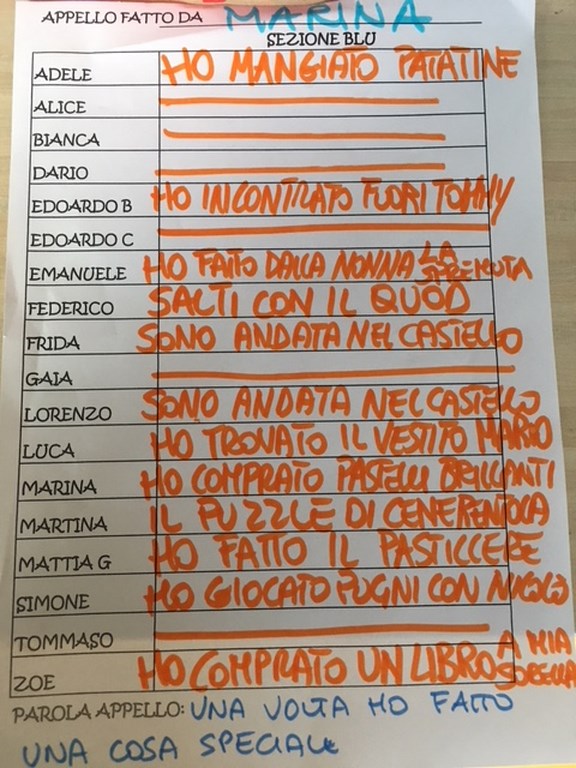 APPELLO FATTO DA MARINA
SEZIONE BLU
ADELE HO MANGIATO PATATINE
ALICE
BIANCA
DARIO
EDOARDO B HO INCONTRATO FUORI TOMMY
EDOARDO C
EMANUELE HO FATTO DALLA NONNA LA SPREMUTA
FEDERICO SALTI CON IL QUOD
FRIDA SONO ANDATA NEL CASTELLO
GAIA
LORENZO SONO ANDATA NEL CASTELLO
LUCA HO TROVATO IL VESTITO MARIO
MARINA HO COMPRATO PASTELLI BRILLANTI
MARTINA IL PUZZLE DI CENERENTOLA
MATTIA G HO FATTO IL PASTICCERE
SIMONE HO GIOCATO PUGNI CON NICOLÒ
TOMMASO
ZOE HO COMPRATO UN LIBRO A MIA SORELLA
PAROLA APPELLO: UNA VOLTA HO FATTO
UNA COSA SPECIALE